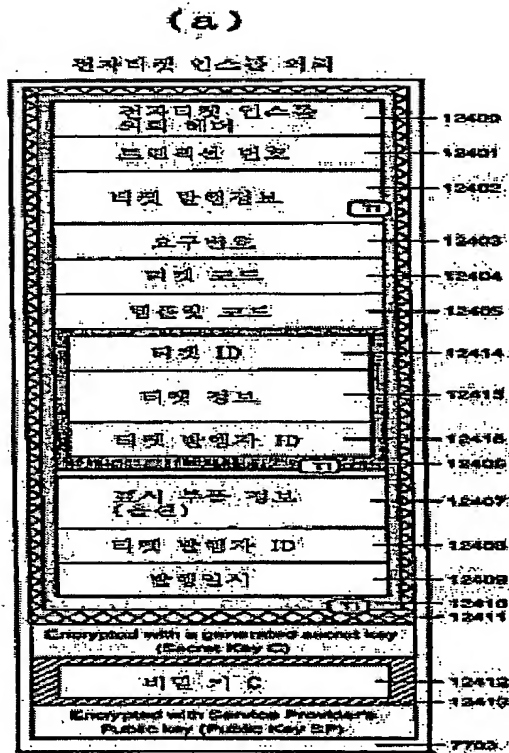 (a)
전자티켓 인스톨 의뢰
전자티켓 인스톨
의뢰 헤더
12400
트랜잭션 번호
12401
티켓 발행정보
12402
TI
요구번호
12403
티켓 코드
12404
템플릿 코드
12405
티켓 ID
12414
티켓 정보
12415
티켓 발행자 ID
12416
TI
12406
표시 부품 정보
(옵션)
12407
티켓 발행자 ID
12408
발행일시
12409
TI
12410
12411
Encrypted with a generated secret key
(Secret Key C)
비밀 키 C
12412
12413
Encrypted with Service Provider's
Public key (Public Key SP)
7703